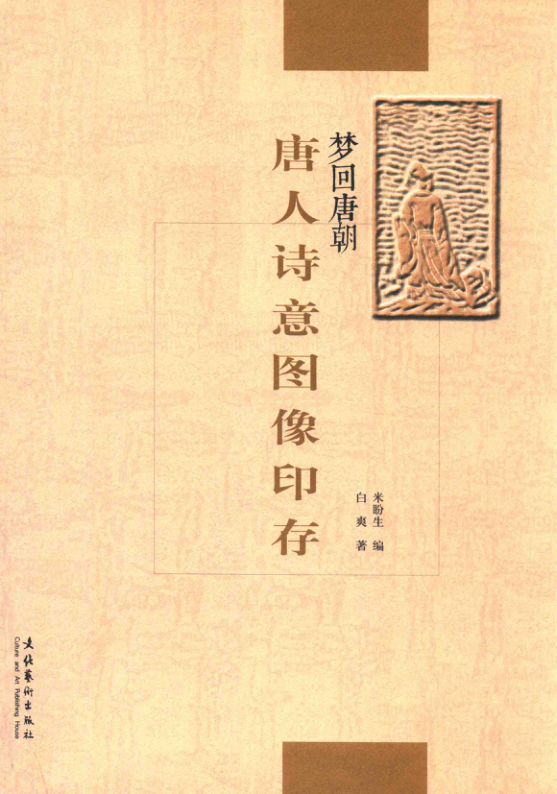 梦回唐朝
唐人诗意图像印存
米盼生 编
白爽 著
文化艺术出版社
Culture and Art Publishing House